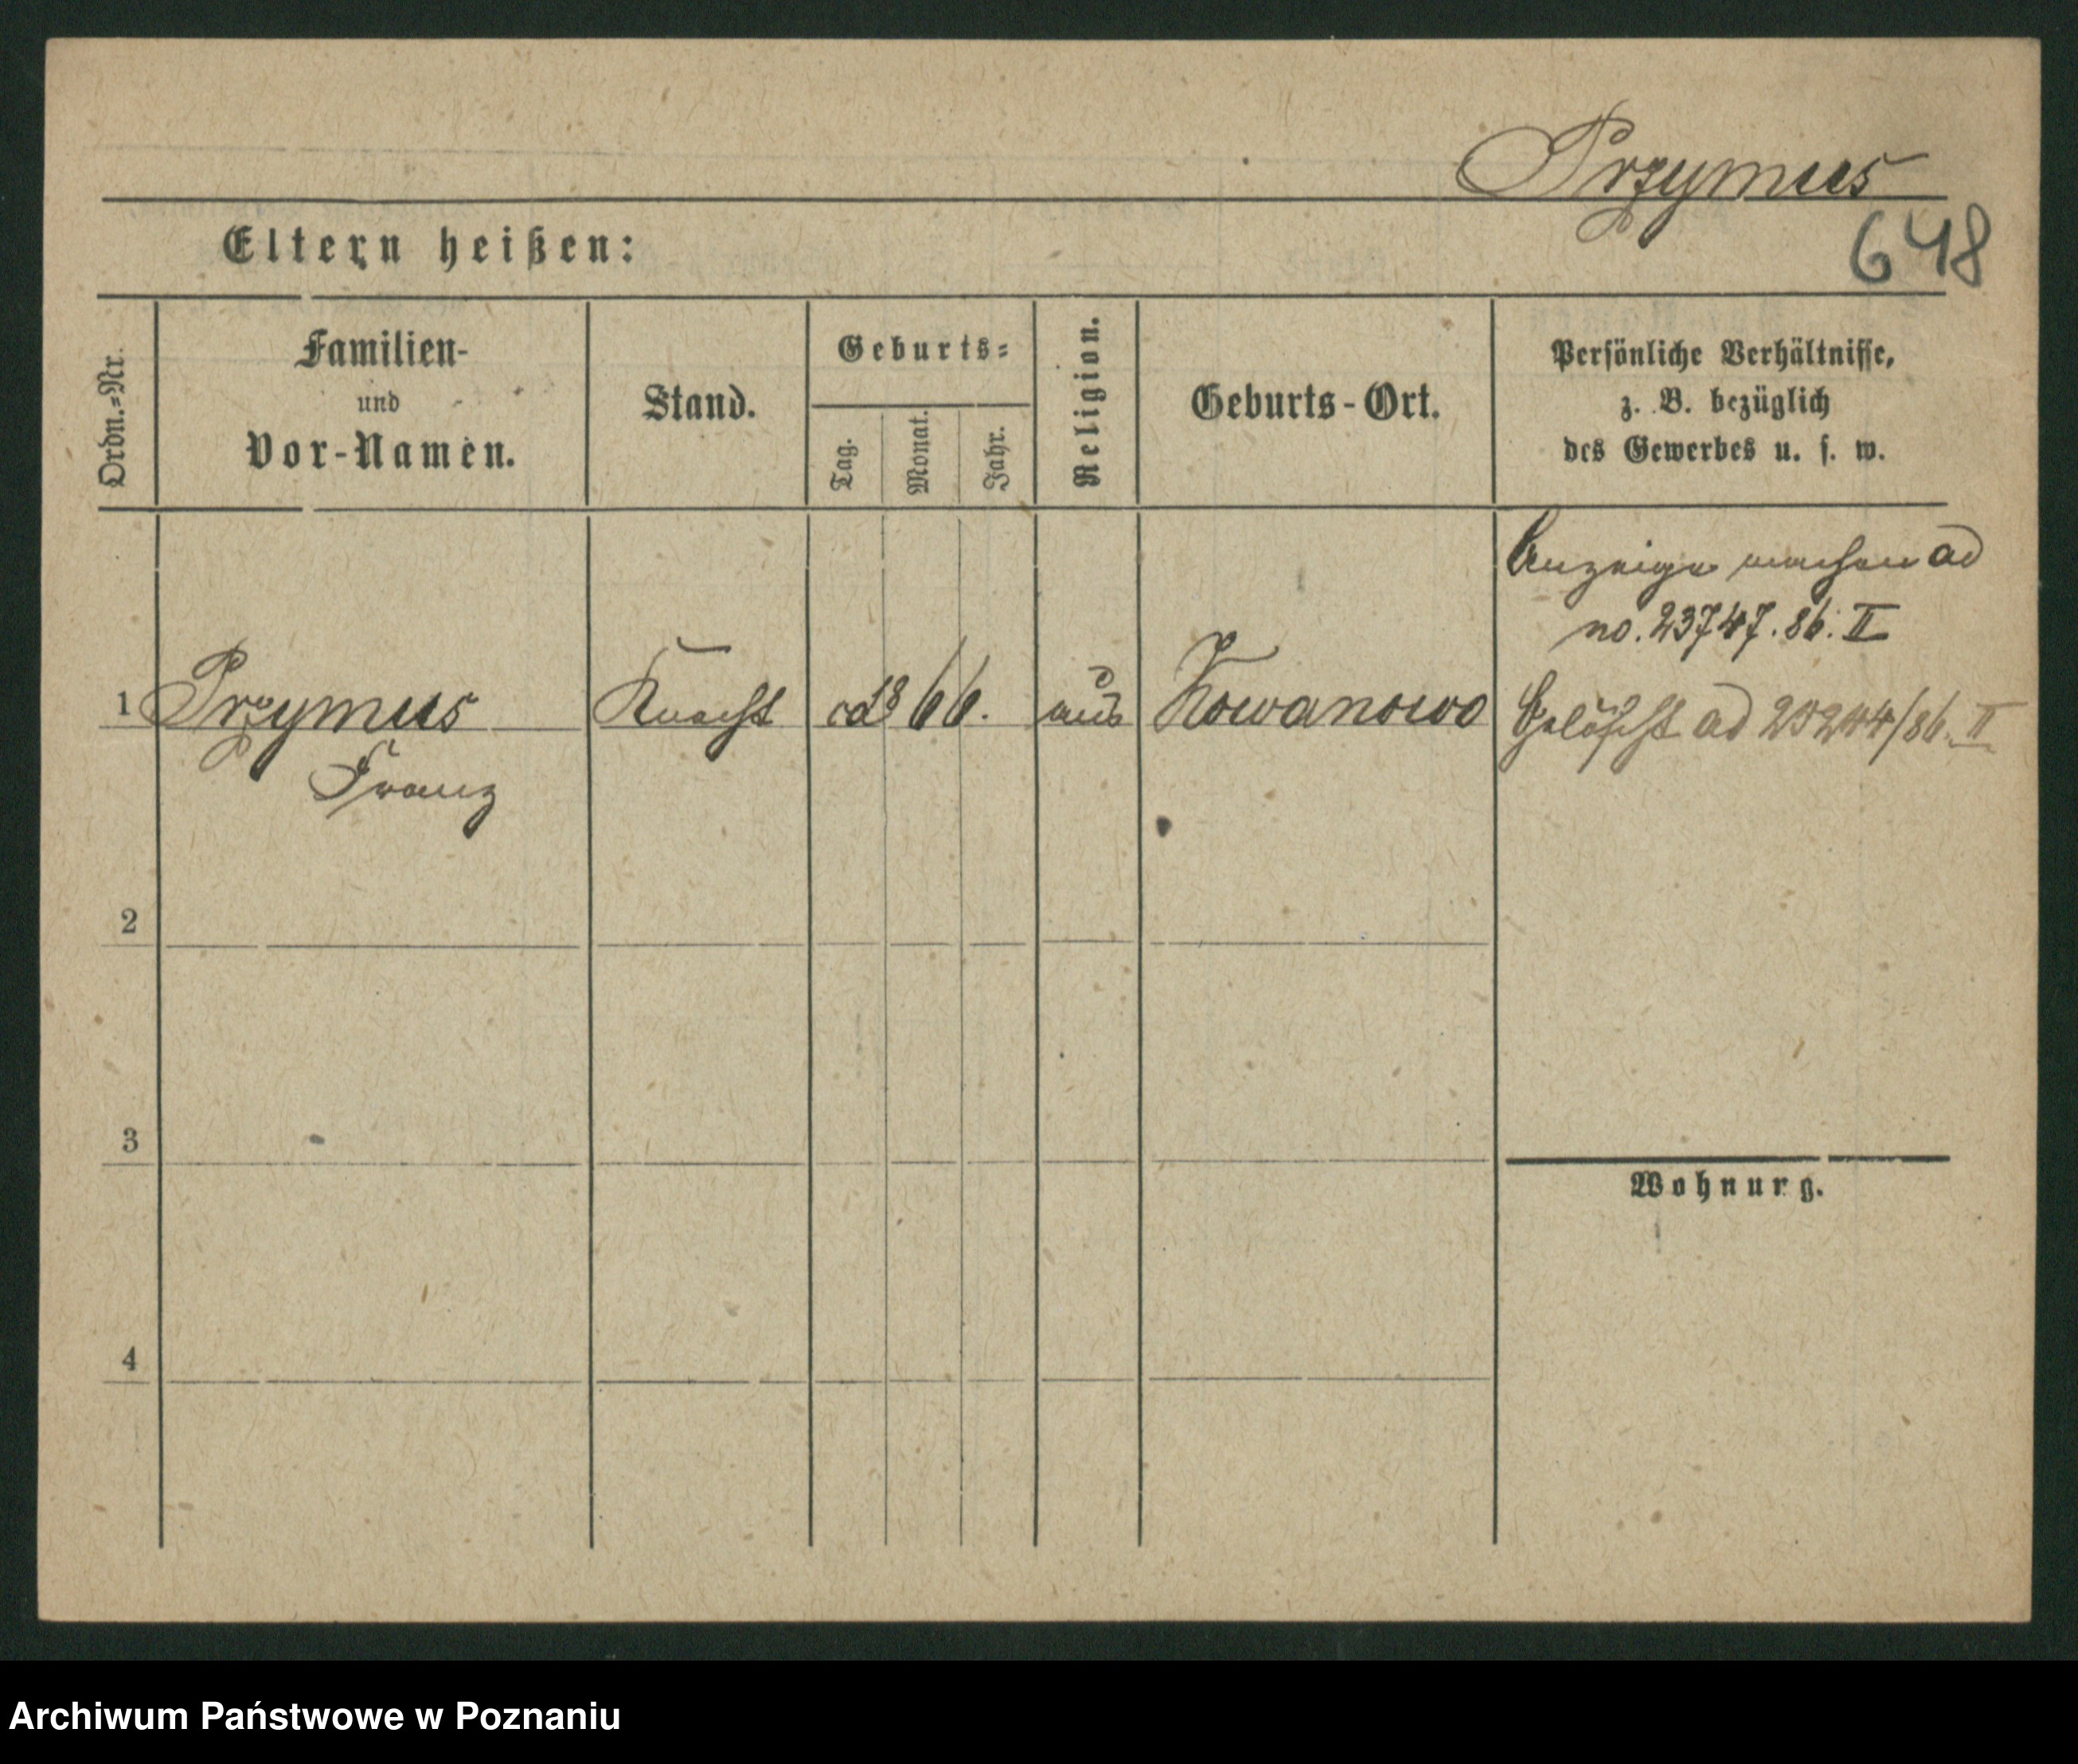 Przymus
648
Eltern heißen:
Ordn.-Nr.
Familien-
und
Vor-Namen.
Stand.
Geburts-
Tag.
Monat.
Jahr.
Religion.
Geburts-Ort.
Persönliche Verhältnisse,
z. B. bezüglich
des Gewerbes u. s. w.
Anzeige machen ad
no. 23747. 86. II
1 Przymus Knecht 1866. aus Kowanowo Gelöscht ad 25244/86. II
Franz
2
3
Wohnurg.
4
Archiwum Państwowe w Poznaniu